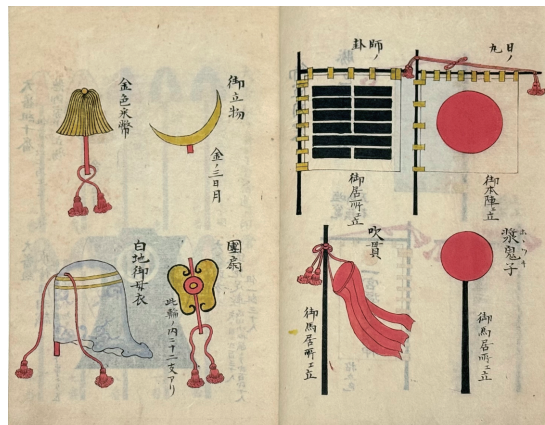 日ノ丸
御本陣ニ立
師ノ卦
御居所ニ立
漿鬼子
御馬居所ニ立
吹貫
御馬居所ニ立
御立物
金ノ三日月
金色永幣
團扇
此輪ノ内ニ十二支アリ
白地御母衣